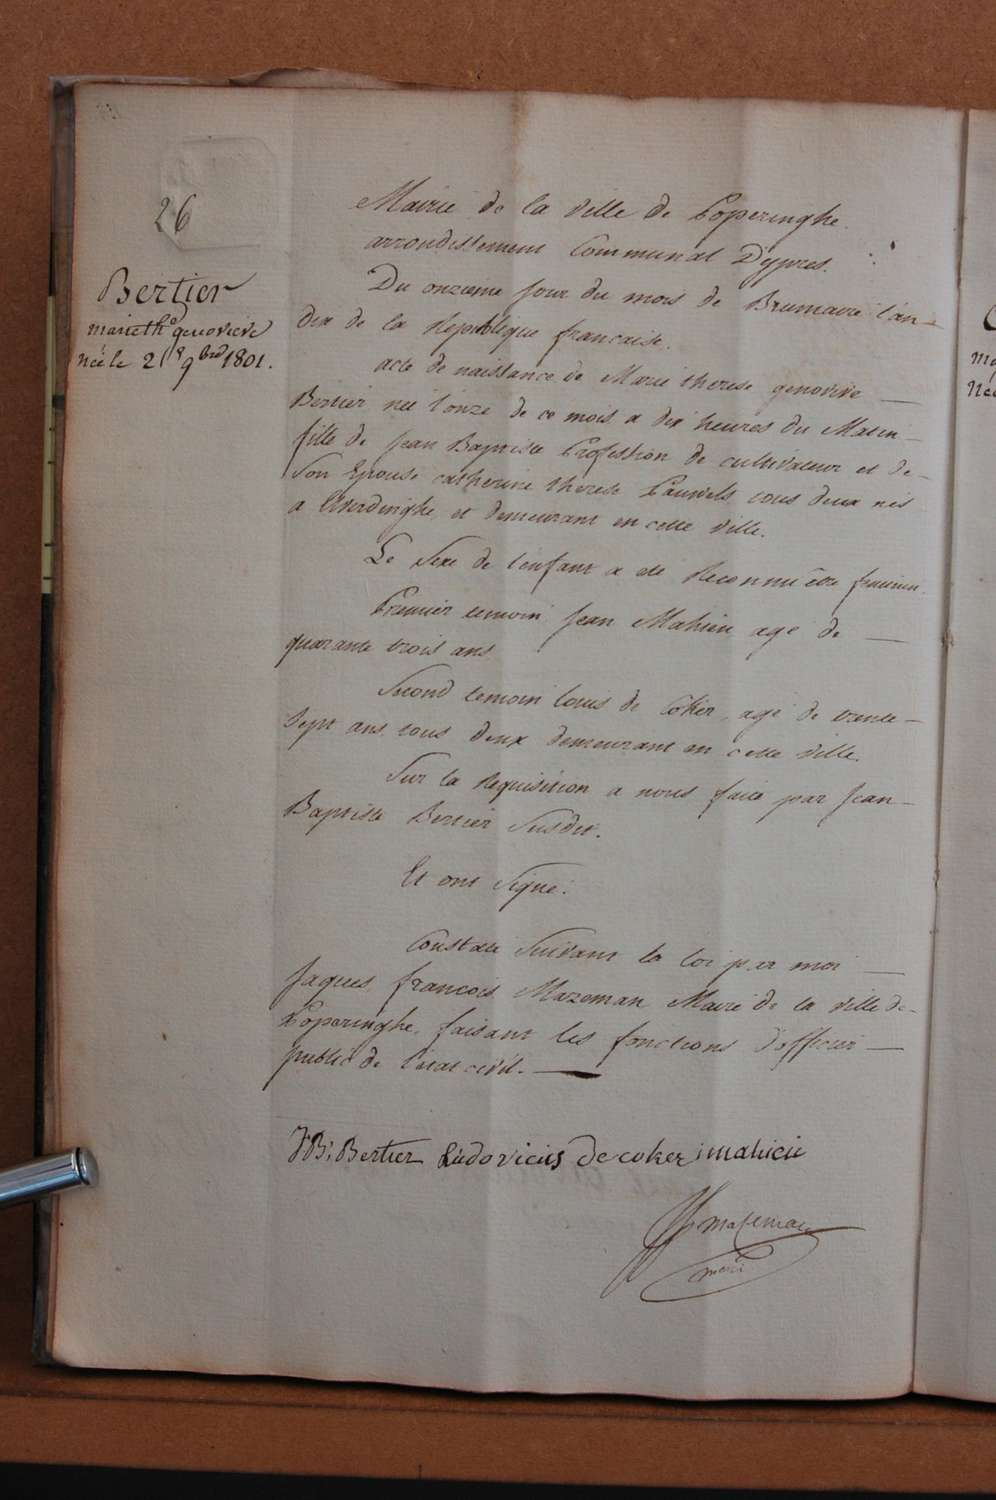 26
Bertier
marie th.e genovieve
née le 2 9bre 1801.
Mairie de la ville de Poperinghe.
arrondissement Communal D'ypres.
Du onzieme jour du mois de Brumaire l'an
dix de la Republique francaise.
acte de naissance de Marie therese genovive
Bertier née l'onze de ce mois a dix heures du Matin
fille de Jean Baptiste Profession de cultivateur et de
Son Epouse catherine therese Pauwels tous deux nés
a Elverdinghe et demeurant en cette ville.
Le Sexe de l'enfant a eté Reconnu être feminin.
Premier temoin Jean Mahieu agé de
quarante trois ans
Second temoin Louis de Coker, agé de trente
Sept ans tous deux demeurant en cette ville.
Sur la Requisition a nous faite par Jean
Baptiste Bertier Susdit.
Et ont Signé:
Constaté Suivant la loi par moi
Jaques francois Mazeman Maire de la ville de
Poperinghe, faisant les fonctions d'officier
public de l'etat civil.
JB: Bertier Ludovicus de coker j mahieu
mazeman